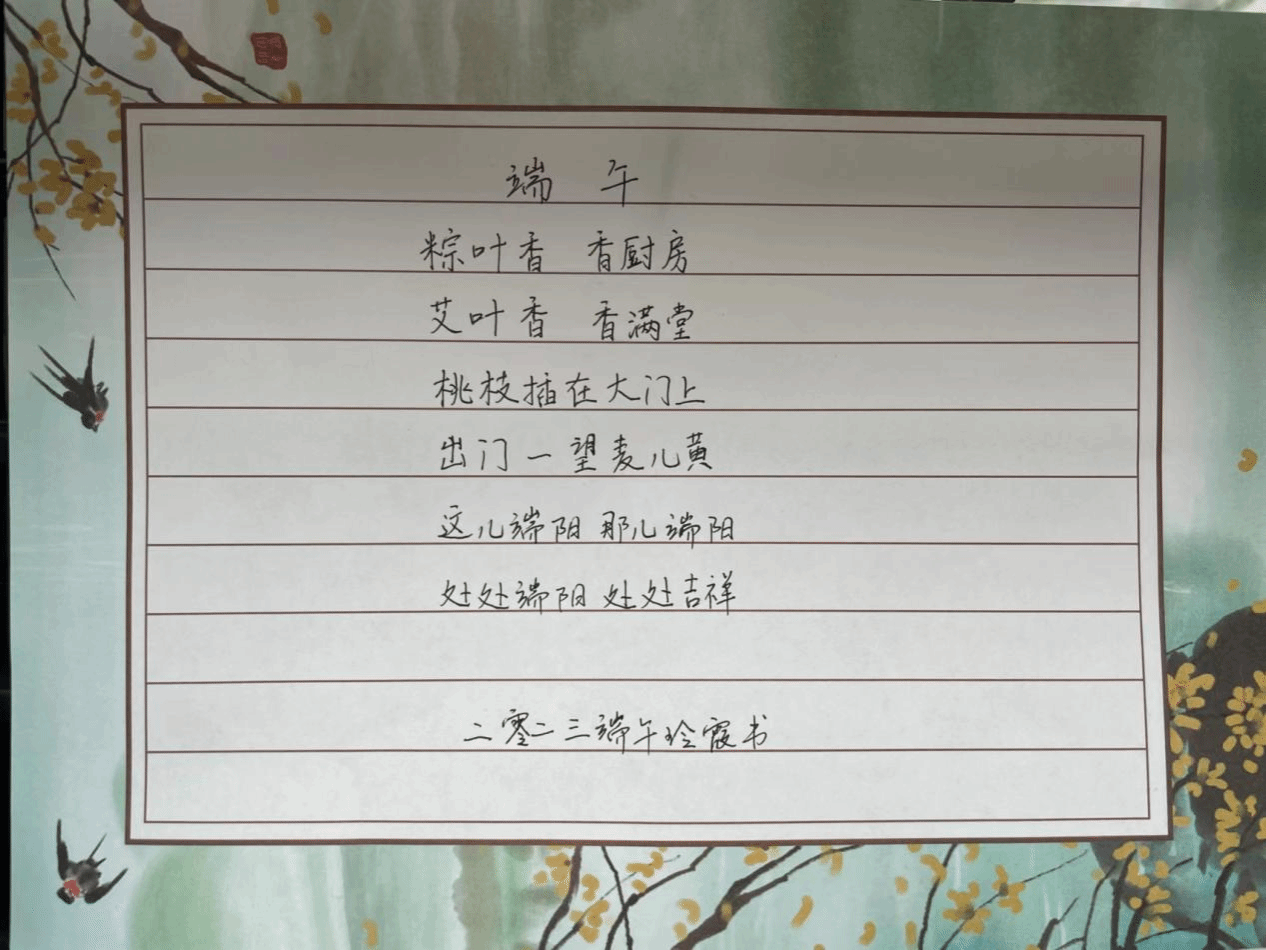 端 午
粽叶香 香厨房
艾叶香 香满堂
桃枝插在大门上
出门一望麦儿黄
这儿端阳 那儿端阳
处处端阳 处处吉祥
二零二三端午玲霞书